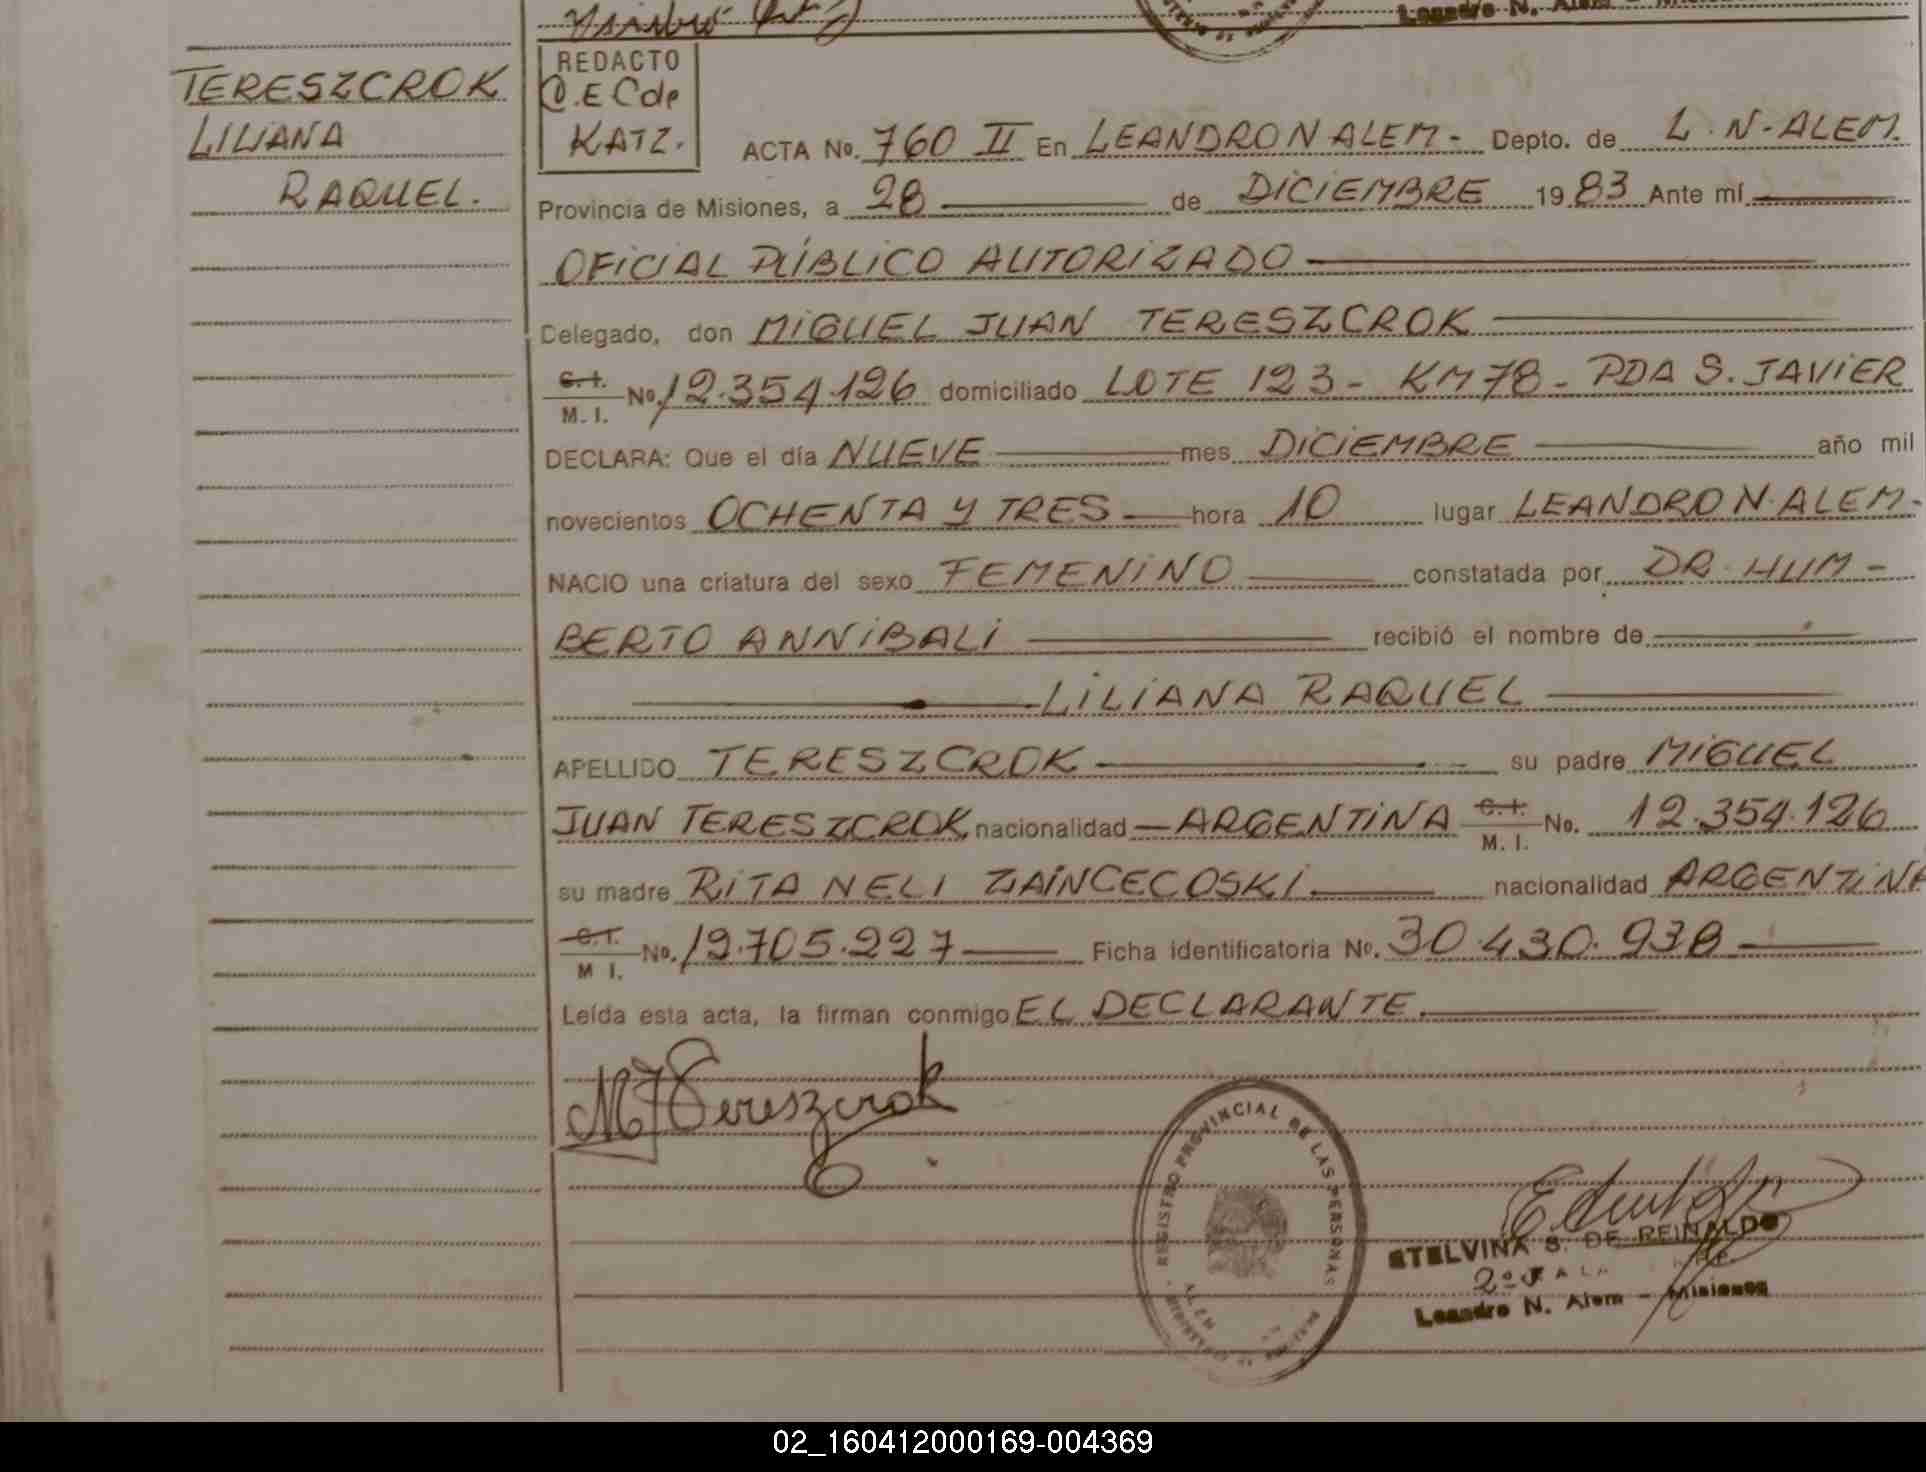 Leandro N. Alem - Misiones
TERESZCROK
LILIANA
RAQUEL.
REDACTO
O.E Cde
KATZ.
ACTA No. 760 II En LEANDRO N ALEM - Depto. de L. N- ALEM.
Provincia de Misiones, a 28 de DICIEMBRE 1983 Ante mí
OFICIAL PÚBLICO AUTORIZADO
Delegado, don MIGUEL JUAN TERESZCROK
C. I. M. I. No. 12.354.126 domiciliado LOTE 123 - KM 78 - PDA S. JAVIER
DECLARA: Que el día NUEVE mes DICIEMBRE año mil
novecientos OCHENTA Y TRES hora 10 lugar LEANDRO N. ALEM-
NACIO una criatura del sexo FEMENINO constatada por DR. HUM-
BERTO ANNIBALI recibió el nombre de
LILIANA RAQUEL
APELLIDO TERESZCROK su padre MIGUEL
JUAN TERESZCROK nacionalidad ARGENTINA C. I. M. I. No. 12.354.126
su madre RITA NELI ZAINCECOSKI nacionalidad ARGENTINA
C. I. M I. No. 12.705.227 Ficha identificatoria No. 30.430.938
Leída esta acta, la firman conmigo EL DECLARANTE.
MJTereszcrok
REGISTRO PROVINCIAL DE LAS PERSONAS
ETELVINA S. DE REINALDO
Leandro N. Alem - Misiones
02_160412000169-004369